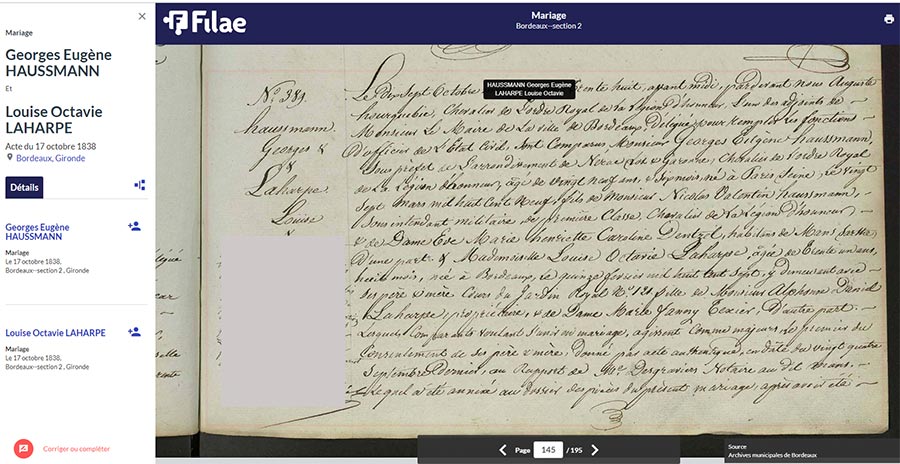 Mariage
Georges Eugène
HAUSSMANN
Et
Louise Octavie
LAHARPE
Acte du 17 octobre 1838
Bordeaux, Gironde
Détails
Georges Eugène
HAUSSMANN
Mariage
Le 17 octobre 1838,
Bordeaux--section 2 , Gironde
Louise Octavie LAHARPE
Mariage
Le 17 octobre 1838,
Bordeaux--section 2 , Gironde
Corriger ou compléter
Filae
Mariage
Bordeaux--section 2
HAUSSMANN Georges Eugène
LAHARPE Louise Octavie
No. 389.
haussmann
Georges &
&
Laharpe
Louise
Le Dix Sept Octobre trente huit, apant midi, pardevant nous Auguste
hourquebie, Chevalier de l'ordre Royal de la légion d'honneur, l'un des adjoints de
Monsieur Le Maire de La ville de Bordeaux, Délégué pour remplir les fonctions
D'officier de l'Etat Civil; Sont Comparus Monsieur Georges Eugène haussmann,
Sous préfet de l'arrondissement de Nérac, Lot & Garonne, Chevalier de l'ordre Royal
de La Légion d'honneur, âgé de vingt neuf ans, & sept mois, né à Paris, Seine, le vingt
Sept Mars mil huit Cent Neuf, fils de Monsieur Nicolas Valentin haussmann,
Sous intendant militaire de première Classe, Chevalier de la légion d'honneur
& de Dame Eve Marie henriette Caroline Dentzel, habitans de Mans, Sarthe
D'une part. & Mademoiselle Louise Octavie Laharpe, âgée de trente un ans,
huit mois, née à Bordeaux, le quinze février mil huit Cent Sept, y demeurant avec
Ses père & mère Cours du Jardin Royal No. 121, fille de Monsieur Alphonse Daniel
Laharpe, propriétaire, & de Dame Marie fanny Texier, D'autre part.
Lesquels Comparants voulant s'unir en mariage, agissent Comme majeurs, le premier du
Consentement de Ses père & mère, Donné par acte authentique, en date du vingt quatre
Septembre Dernier, au Rapport de Me. Desgraviers Notaire au dit Mans.
Lequel a été annexé au dossier des pièces du présent mariage, après avoir été
Page 145 / 195
Source
Archives municipales de Bordeaux